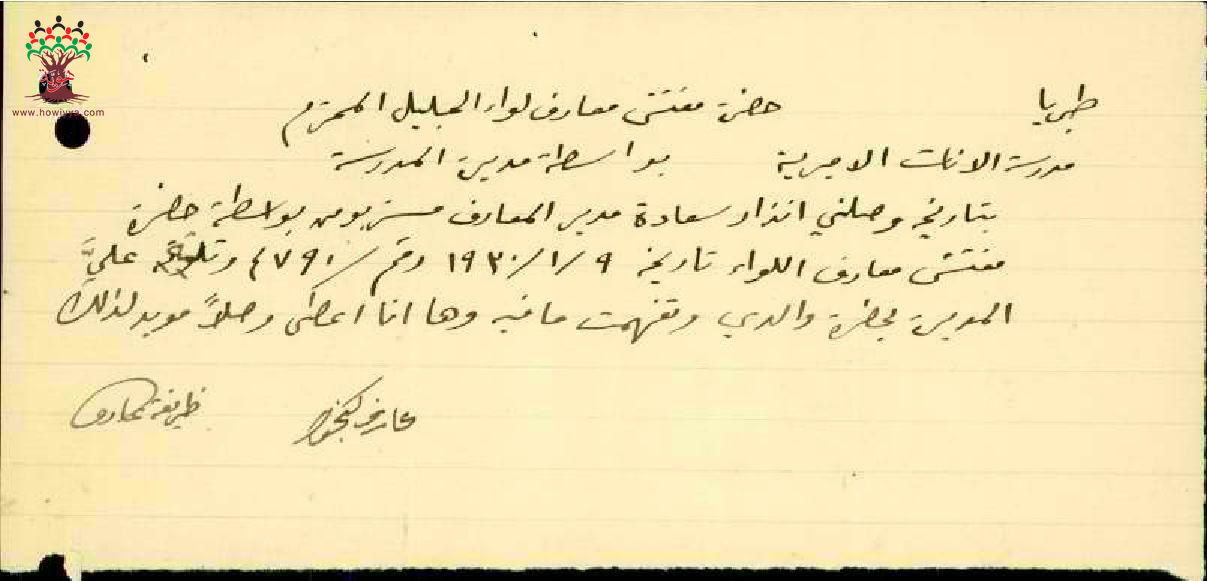 هوية
www.howiyya.com
طبريا حضرة مفتش معارف لواء الجليل المحترم
مدرسة الاناث الاميرية بواسطة مديرة المدرسة
بتاريخه وصلني انذار سعادة مدير المعارف مستر بومن بواسطة حضرة
مفتش معارف اللواء تاريخ ٩/١/١٩٣٠ رقم /٤٧٩١ وتلته عليَّ
المديرة بحضرة والدي وتفهمت ما فيه وها انا اعطي وصلاً مويد لذلك
عارف ظريفة عارف